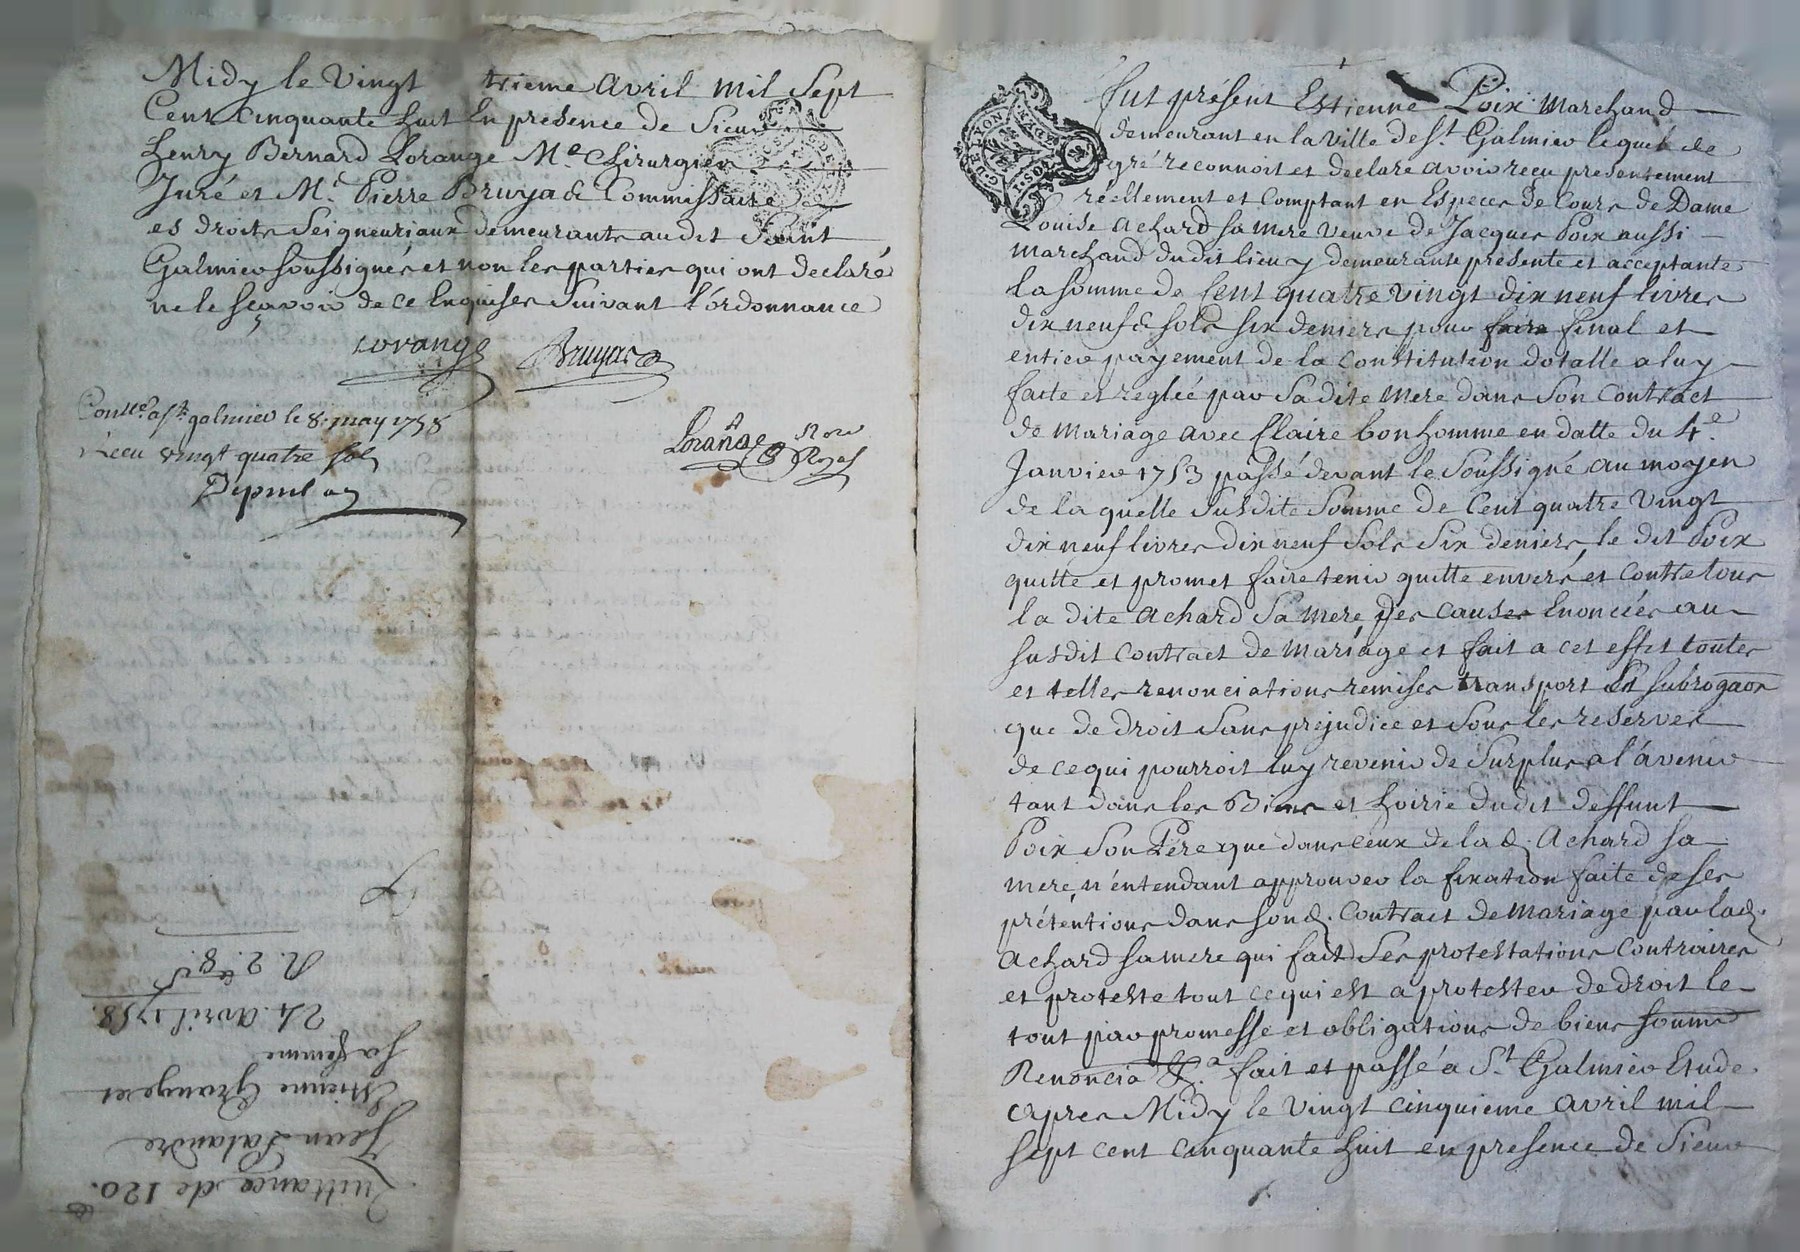 Midy le Vingt trieme avril mil Sept
Cent Cinquante huit En presence de Sieur
henry Bernard Lorange Me Chirurgien
Juré et Me. Pierre Bruyas Commissaire
es droits Seigneuriaux demeurants audit Saint
Galmier soussignés et non les parties qui ont declaré
ne le scavoir de ce Enquises Suivant l'ordonnance
Lorange Bruyas
Lorange No.re Royal
Con.lle a St. galmier le 8. may 1758
Reçu vingt quatre sols
R. 2. 8. s
24. avril 1758.
sa femme
Estienne Grange et
Jean Lalandre
Quittance de 120.
fut présent Estienne Poix Marchand
demeurant en la ville de St. Galmier lequel de
gré reconnoit et declare avoir reçu presentement
réellement et Comptant en Especes de Cours de Dame
Louise Achard sa mere veuve de Jacques Poix aussi
marchand dudit lieu y demeurante presente et acceptante
la somme de Cent quatre vingt dix neuf livres
dix neuf sols six deniers pour faire final et
entier payement de la Constitution dotalle a luy
faite et regléé par Sa dite Mere dans Son Contract
de Mariage avec Claire bonhomme en datte du 4.e
Janvier 1753 passé devant le Soussigné au moyen
de la quelle Susdite Somme de Cent quatre Vingt
dix neuf livres dix neuf Sols Six deniers, le dit Poix
quitte et promet faire tenir quitte envers et Contre tous
la dite Achard Sa Mere des causes Enoncées au
susdit Contract de Mariage et fait a cet effet toutes
et telles renonciations remises transport et subrogaons
que de droit Sans prejudice et Sous les reserves
de ce qui pourroit luy revenir de Surplus a l'avenir
tant dans les Biens et hoirie dudit deffunt
Poix Son Pere que dans ceux de la d. Achard sa
mere, n'entendant approuver la fixation faite de ses
prétentions dans son d. Contract de Mariage par lad.
Achard sa mere qui fait Ses protestations Contraires
et proteste tout ce qui est a protester de droit le
tout par promesse et obligations de biens soumis
Renoncia &.a fait et passé á St. Galmier Etude
apres Midy le Vingt Cinquieme avril mil
Sept Cent Cinquante huit en presence de Sieur